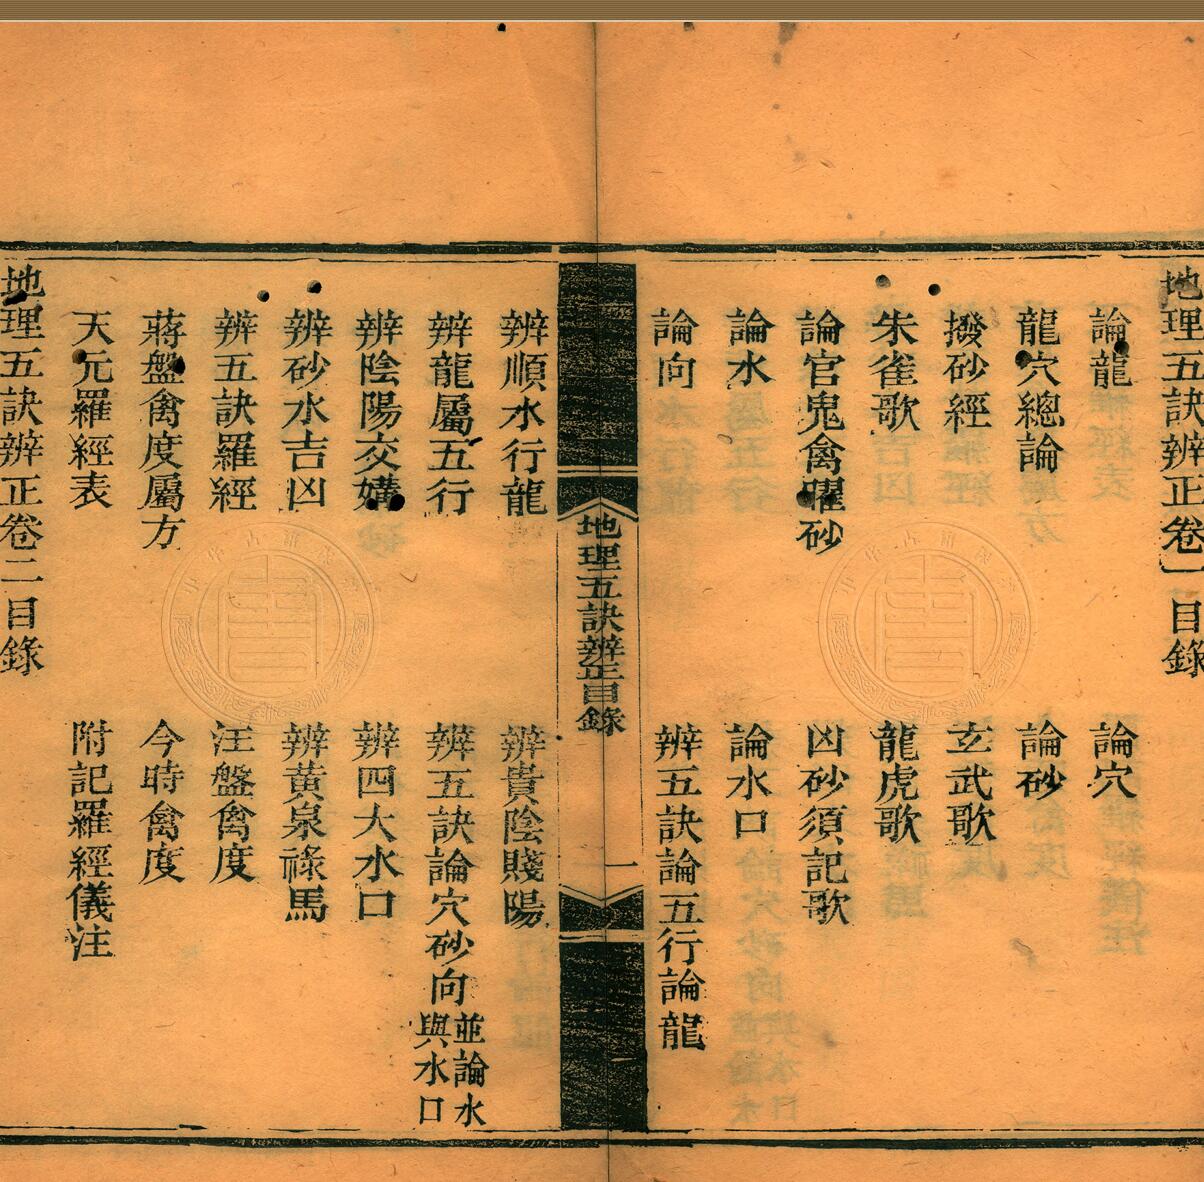 地理五訣辨正卷一目錄
論龍 論穴
龍穴總論 論砂
撥砂經 玄武歌
朱雀歌 龍虎歌
論官鬼禽曜砂 凶砂須記歌
論水 論水口
論向 辨五訣論五行論龍
地理五訣辨正目錄 一
辨順水行龍 辨貴陰賤陽
辨龍屬五行 辨五訣論穴砂向並論水與水口
辨陰陽交媾 辨四大水口
辨砂水吉凶 辨黃泉祿馬
辨五訣羅經 汪盤禽度
蔣盤禽度屬方 今時禽度
天元羅經表 附記羅經儀注
地理五訣辨正卷二目錄